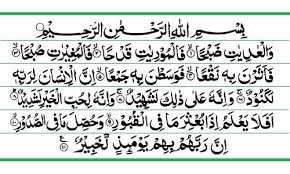 بِسْمِ اللّٰهِ الرَّحْمٰنِ الرَّحِيْمِ
وَالْعٰدِيٰتِ ضَبْحًا ۙ﴿۱﴾ فَالْمُوْرِيٰتِ قَدْحًا ۙ﴿۲﴾ فَالْمُغِيْرٰتِ صُبْحًا ۙ﴿۳﴾
فَاَثَرْنَ بِهٖ نَقْعًا ۙ﴿۴﴾ فَوَسَطْنَ بِهٖ جَمْعًا ۙ﴿۵﴾ اِنَّ الْاِنْسَانَ لِرَبِّهٖ
لَكَنُوْدٌ ۚ﴿۶﴾ وَاِنَّهٗ عَلٰى ذٰلِكَ لَشَهِيْدٌ ۚ﴿۷﴾ وَاِنَّهٗ لِحُبِّ الْخَيْرِ لَشَدِيْدٌ ؕ﴿۸﴾
اَفَلَا يَعْلَمُ اِذَا بُعْثِرَ مَا فِى الْقُبُوْرِ ۙ﴿۹﴾ وَحُصِّلَ مَا فِى الصُّدُوْرِ ۙ﴿۱۰﴾
اِنَّ رَبَّهُمْ بِهِمْ يَوْمَئِذٍ لَّخَبِيْرٌ ﴿۱۱﴾